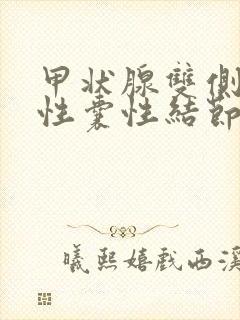 甲状腺雙側
性囊性結節
曦熙嬉戲西溪